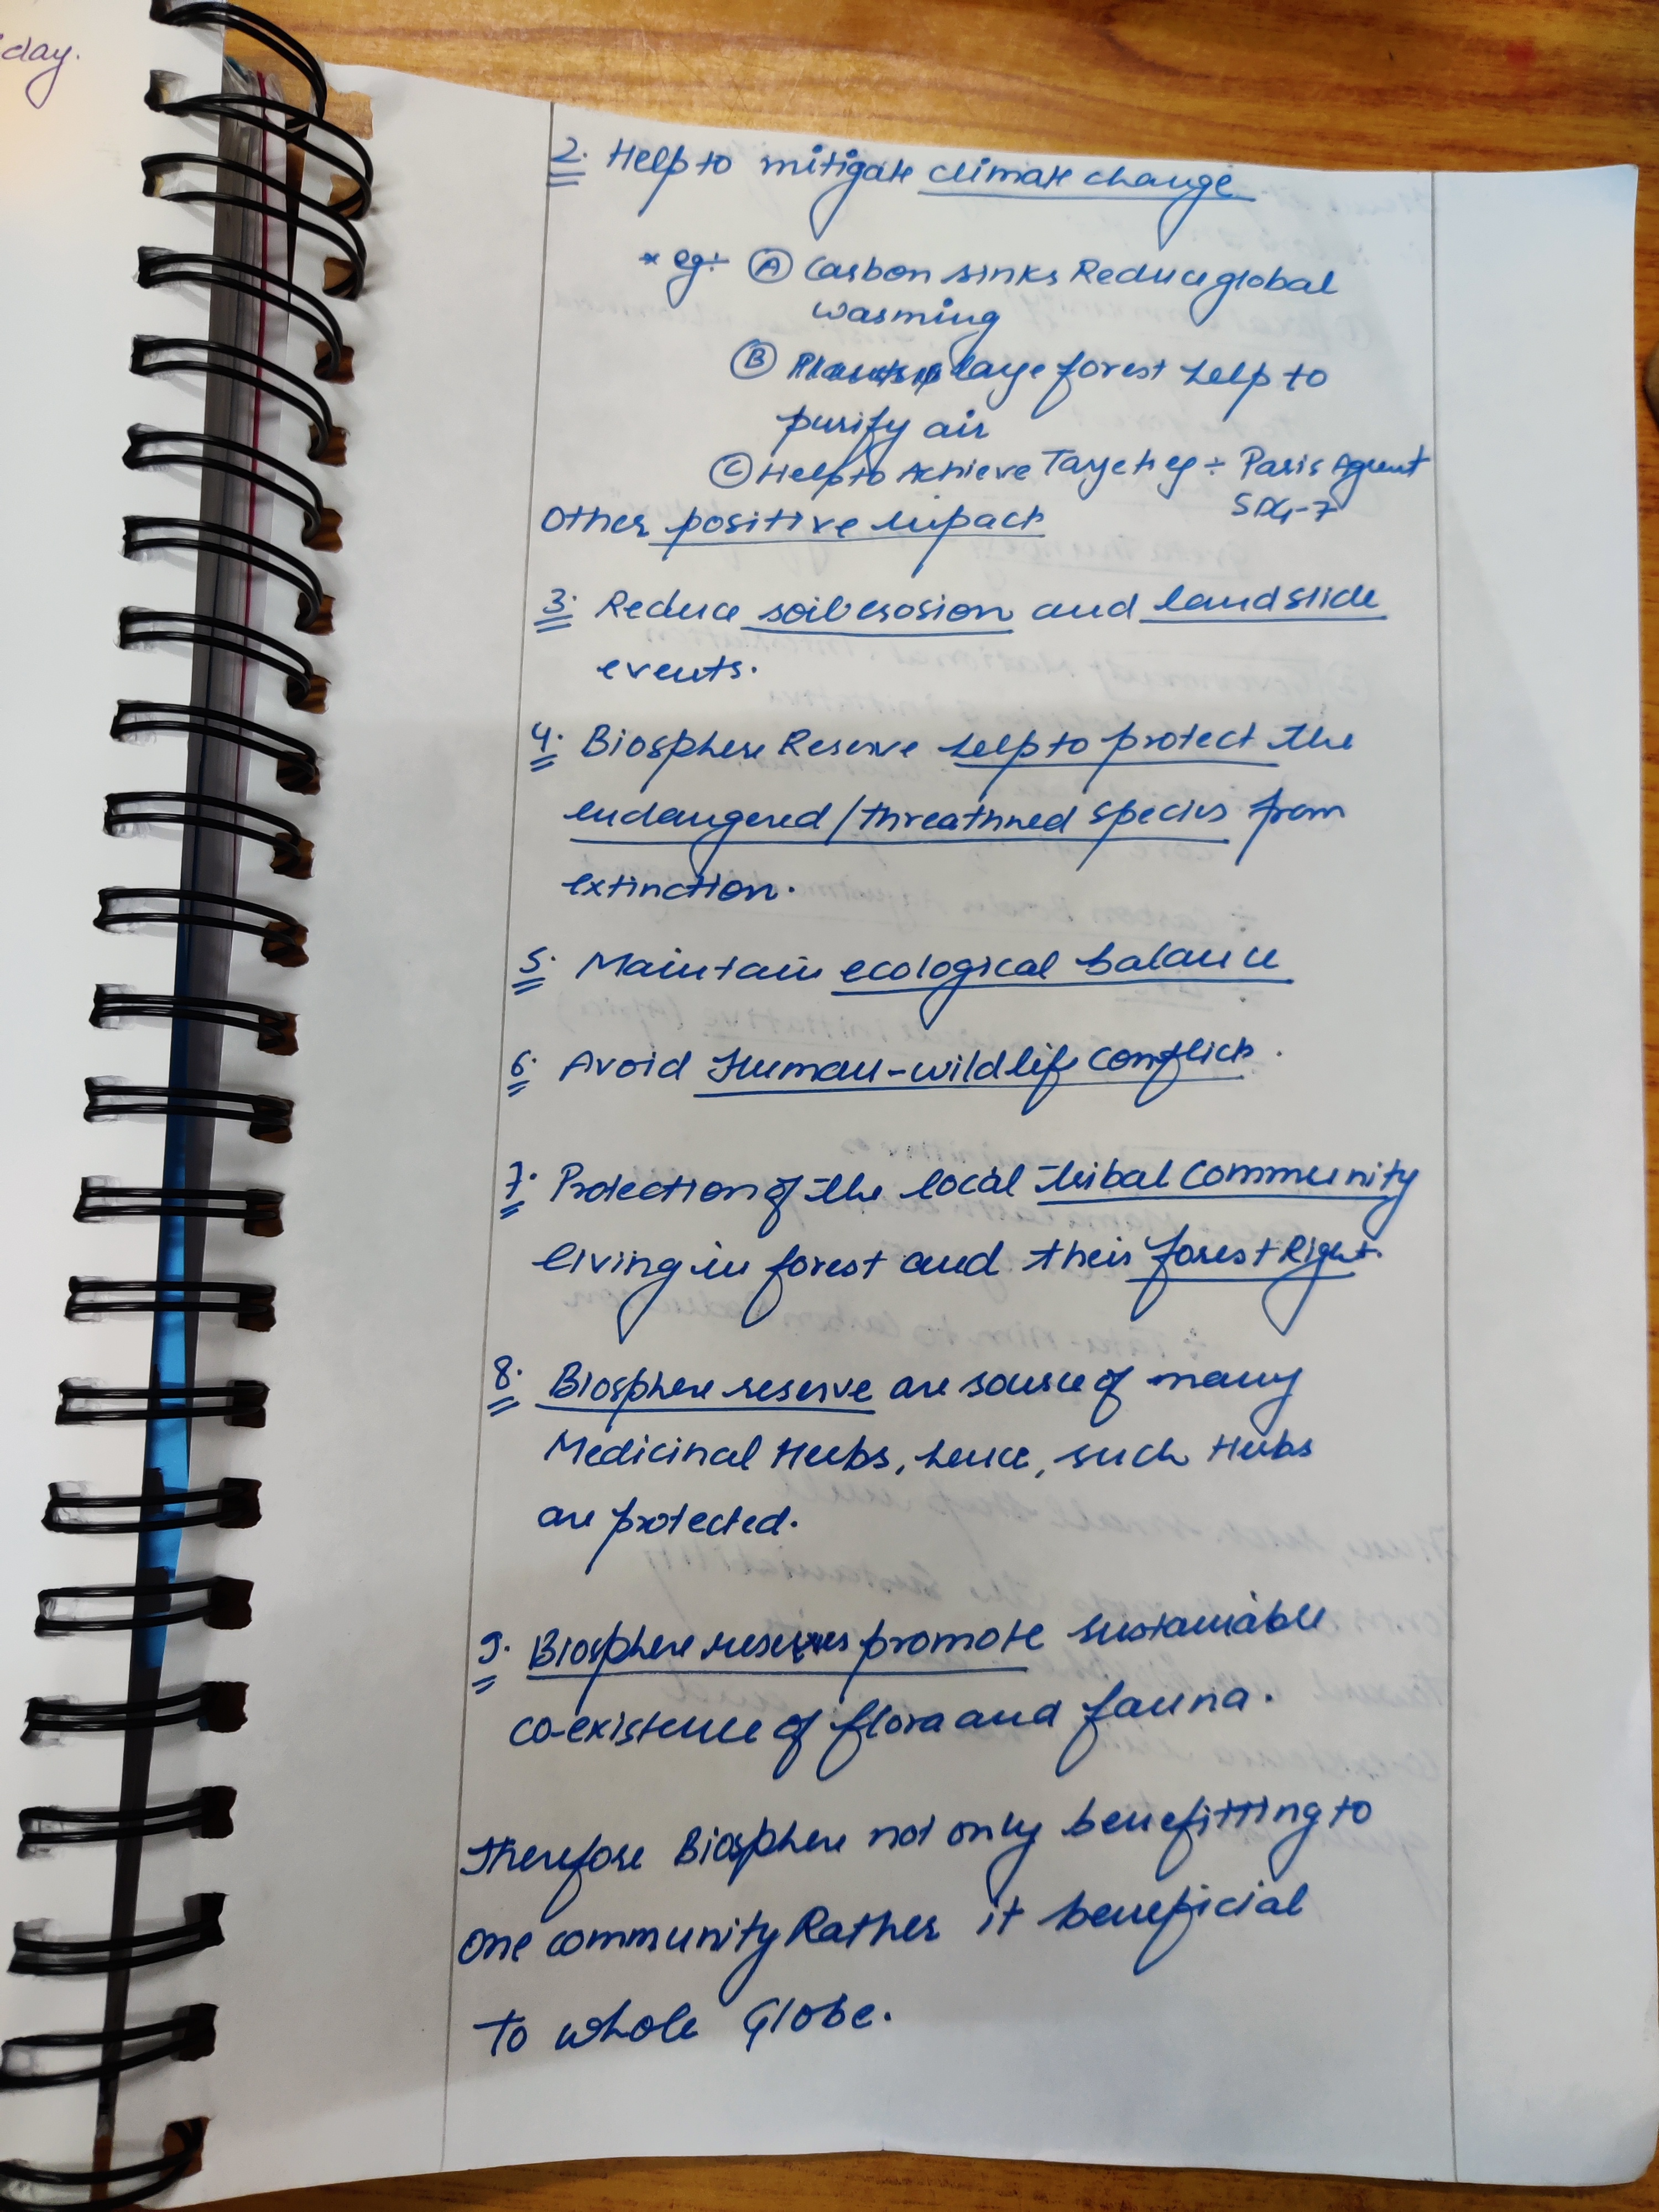 day.
2. Help to mitigate climate change
* eg:- (A) Carbon sinks Reduce global
warming
(B) large forest help to
purify air
(C) Help to Achieve Target eg ÷ Paris Agreement
SDG-7
Other positive impact
3. Reduce soil erosion and landslide
events.
4. Biosphere Reserve help to protect the
endangered/threathned species from
extinction.
5. Maintain ecological balance
6. Avoid Human-wildlife conflict.
7. Protection of the local tribal community
living in forest and their forest Right.
8. Biosphere reserve are source of many
Medicinal Herbs, hence, such Herbs
are protected.
9. Biosphere reserves promote sustainable
co-existence of flora and fauna.
Therefore Biosphere not only benefitting to
one community Rather it beneficial
to whole Globe.